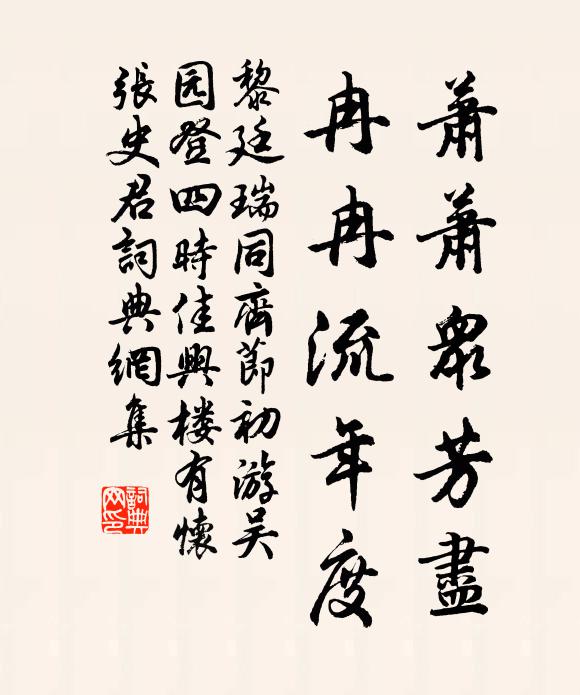 蕭蕭眾芳盡
冉冉流年度
黎廷瑞同齊節初游吴
园登四時佳興楼有懷
張史君詞典網集
詞典
网印